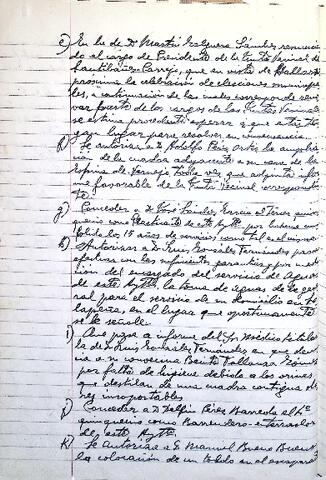 e) En la de D. Martín Salguera Sánchez renuncian-
do al cargo de Presidente de la Junta Vecinal de
Santibáñez Carreja, que en vista de hallarse
próxima la celebración de elecciones municipa-
les, a continuación de las cuales corresponde reno-
var parte de los cargos de las Juntas Vecinales
se estima procedente esperar a que ésta ten-
gan lugar para resolver en consecuencia.
f) Se autoriza a D. Adolfo Ruiz Ortiz la amplia-
ción de la cuadra adyacente a su casa de la
toda vez que adjunta infor-
me favorable de la Junta Vecinal correspondien-
te.
g) Conceder a D. José Sánchez García el tercer quin-
quenio como Practicante de este Aytto. por haber cum-
plido los 15 años de servicios como tal en el mismo
h) Autorizar a D. Luis González Fernández para
efectuar con las suficientes garantías por me-
dio del encargado del servicio de Aguas
de este Aytto. la toma de aguas de la gene-
ral para el servicio de su domicilio en
en el lugar que oportunamente
se le señale.
i) Que pase a informe del Sr. Médico titular
la de Luis González Fernández en que denun-
cia a su convecina Benita
por falta de higiene debido a los orines
que destilan de una cuadra contigua
insoportables
j) Conceder a Delfín Pérez Barreda el 4º
quinquenio como Barrendero-enterrador
de este Aytto.
k) Se autoriza a D. Manuel Bueno Bueno
la colocación de un toldo en el escaparate